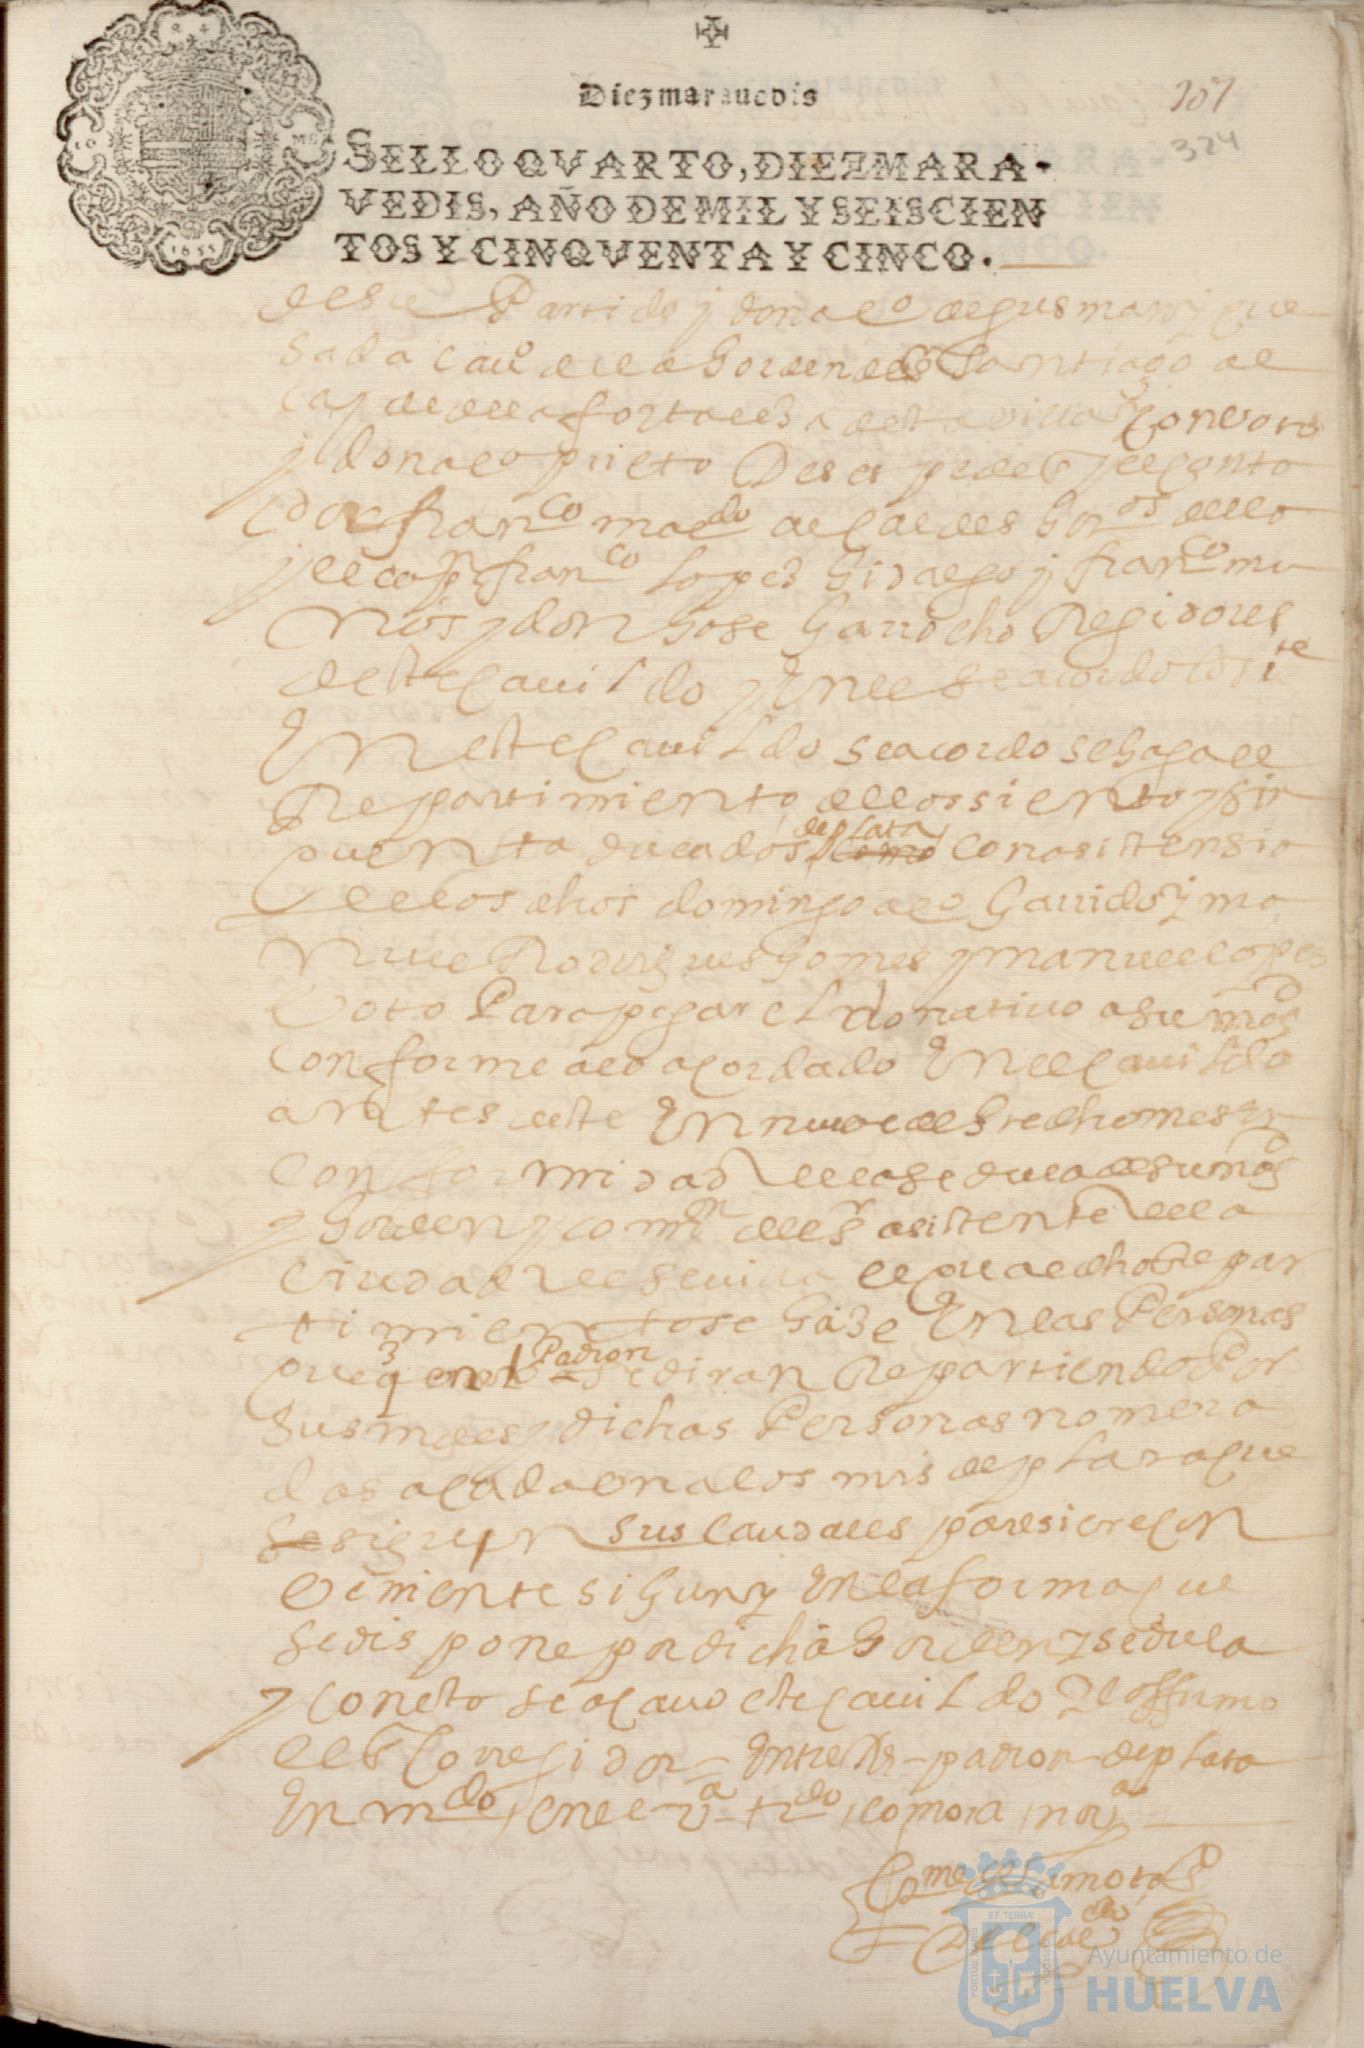 Diez maravedis
107
324
SELLO QVARTO, DIEZ MARA-
VEDIS, AÑO DE MIL Y SEISCIEN
TOS Y CINQVENTA Y CINCO.
deste Partido y don al° de gusman y que
sada cau° de la horden de Santiago al
cayde de la fortaleza desta villa
y don al° prieto
franco maldo alcaldes hor^os della
y el capn franco lopez hidalgo y franco mu
ños y don Jose Garrocho Regidores
deste cauildo y En el se acordo lo sigte
En este cauildo se acordo se haga el
Repartimiento de los siento y sin
quenta ducados de plata como con asistensia
de los dhos domingo al° Garrido y ma
nuel Rodrigues Gomes y manuel lopes
Coto Para pagar el donatiuo a su magd
conforme a lo acordado En el cauildo
antes deste En nueue deste dho mes En
conformidad de la sedula de su magd
y horden y comin del sr asistente de la
ciudad de Seuilla el qual dho Repar
timiento se haze En las Personas
que en el Padron se diran Repartiendo Por
sus mdes y dichas Personas nomera
das a cada una los mrs de plata que
se siguen sus caudales
En la forma que
se dispone por dicha horden y sedula
y con esto se acauo este cauildo y lo ffirmo
el sr Corregidor = Entre Rs - padron - de plata
En mdo en el Ra - tdo como ra no va
Ayuntamiento de
HUELVA